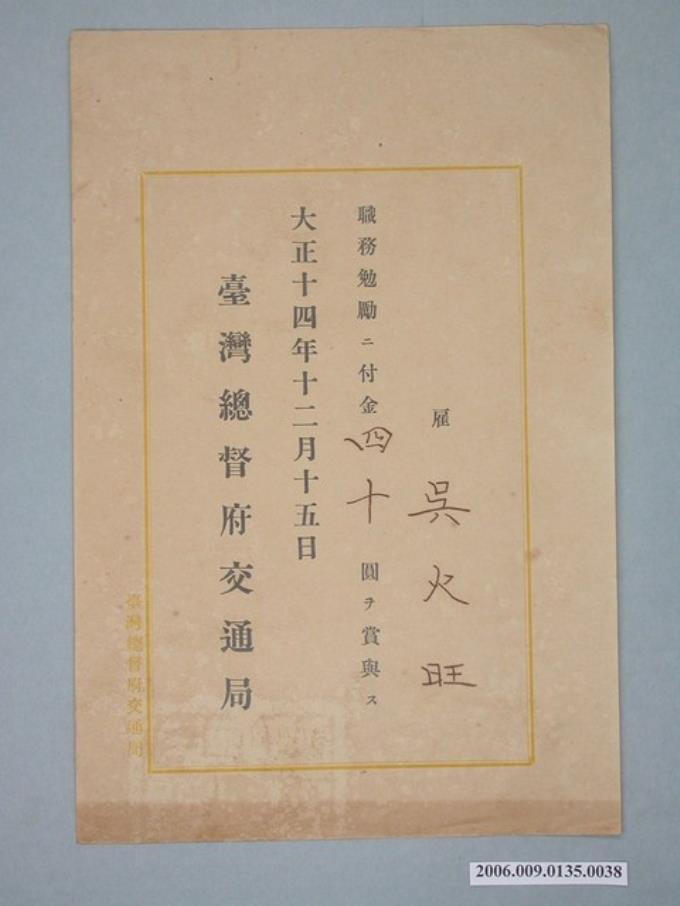 雇 吳火旺
職務勉勵ニ付金四十圓ヲ賞與ス
大正十四年十二月十五日
臺灣總督府交通局
臺灣總督府交通局
2006.009.0135.0038